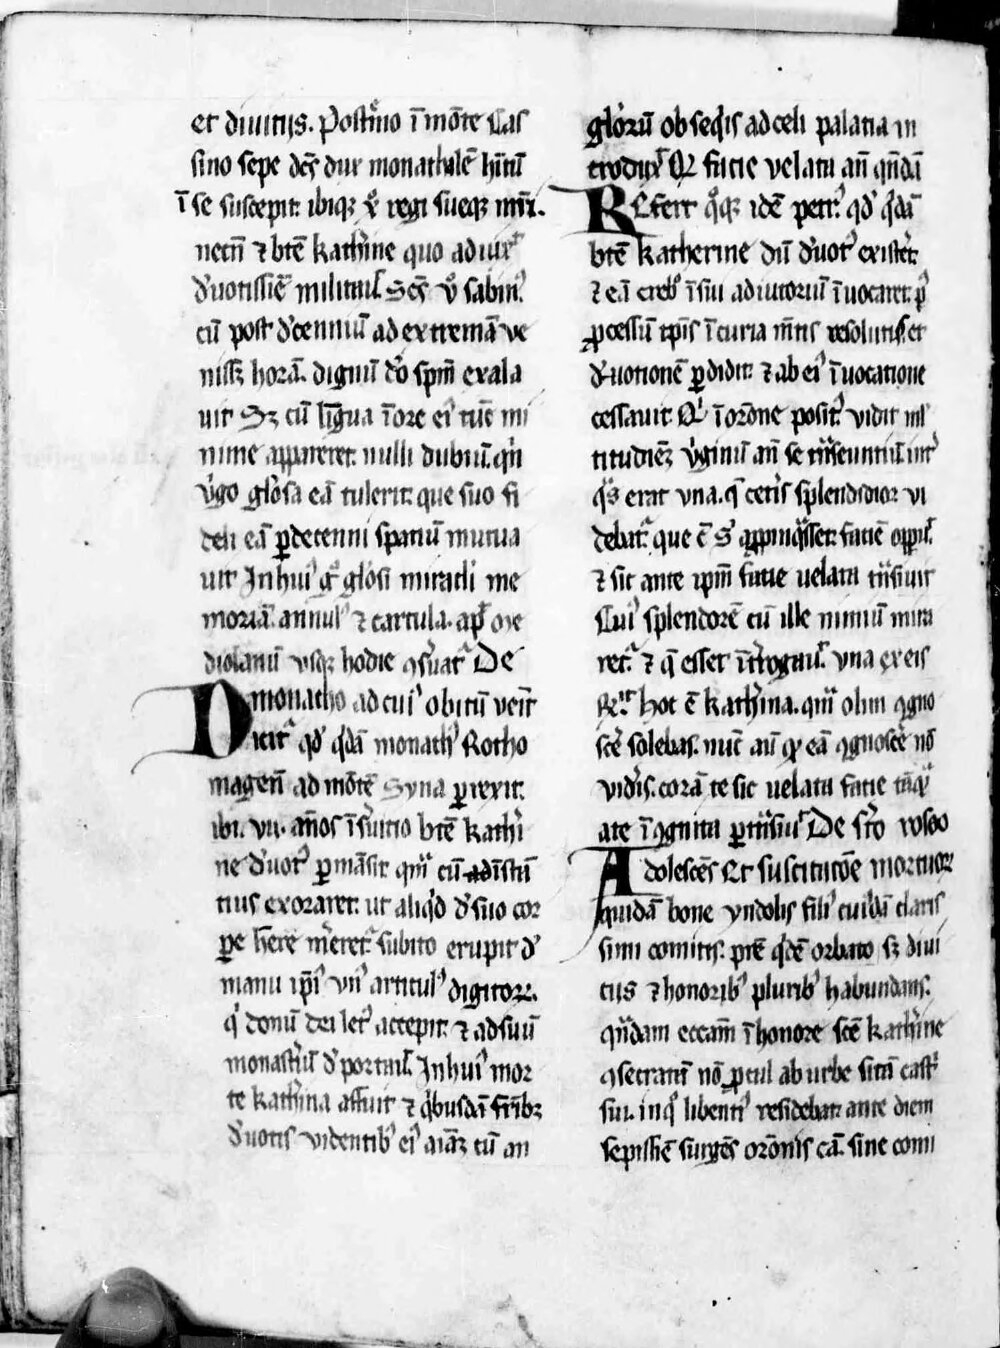 et diuitijs. Postmo ī mōte Cas
sino sepe dc̄s dux monachilē hītū
ī se suscepit. ibiqz xp̄o regi sueqz mr̄i.
necn̄ ⁊ btē kathīne quo aduix̄
d'uotissiē militauit. Sc̄s v̊ sabin᷒
cū post d'cenniū ad extremā ve
nissz horā. dignū dō spm̄ exala
uit Sz cū līgua ī ore ei᷒ tūc mi
nime appareret. nulli dubiū. qn̄
v'go gl'osa eā tulerit. que suo fi
deli eā ꝑ decenni spatiū mutua
uit In hui᷒ gͦ gl'osi miracli me
moriā. annul᷒ ⁊ cartula. apd' me
diolanū usqz hodie ꝯseruat᷑ De
monacho ad cui᷒ obitū venīt
Dicit᷑ qd' q'dā monach᷒ Rotho
magen̄ ad mōtē Syna ꝑrexit.
ibi. vii. annos ī s'uitio btē kathi
ne d'uot᷒ ꝑmāsit. qui cū īstā
tius exoraret. ut aliq'd d' suo cor
pe h'ere m'eret᷑ subito erupit d'
manu ip̄i᷒ vn᷒ articul᷒ digitoꝝ.
q' donū dei let᷒ accepit. ⁊ ad suū
monast'iū d'portauit. In hui᷒ mor
te kath'ina affuit ⁊ q'busdā fr̄ibz
d'uotis videntib᷒ ei᷒ aīaz cū an
gl'orū obseq'is ad celi palatia in
troduxit Qd' facie velata an̄ qn̄dā
Refert q̊qz idē petr᷒ qd' q'dā
btē katherine dū d'uot᷒ existēt.
⁊ eā crebro ī sui adiutoriū īuocaret. p᷒
ꝓcessū tp̄is ī curia mētis resolutus. et
d'uotionē ꝑdidit. ⁊ ab ei᷒ īuocatione
cessauit Qd' ī or̄one posit᷒ vidit ml'
titudinez v'ginū an̄ se trāseuntiū. int'
q's erat vna. q̄ cet'is splendidior vi
debat᷑. que cū s' appinq̄sset. faciē oppuit
⁊ sic ante ipm̄ facie uelata trāsiuit
Cui᷒ splendorē cū ille nimiū mira
ret᷑. ⁊ q̄ esset īt'rogauit. vna ex eis
Rn̄. hec ē kath'ina. quā olim ꝯgno
sc'e solebas. nūc aū qꝛ eā ꝯgnosc'e nō
vid'is. corā te sic uelata facie tāq̄
a te īꝯgnita ꝑtrāsiuit De sc̄o roseo
Adolescēs et suscitatiōe mortuoꝝ
quidā bone yndolis fili᷒ cui᷒dā claris
simi comitis. pr̄e q'dē orbato sz diui
ciis ⁊ honorib᷒ plurib᷒ habundans.
quādam eccam̄ ī honore sc̄e kath'ine
ꝯsecratā nō ꝓcul ab urbe sitā cast'
sui. in q̄ libenti᷒ residebat. ante diem
sepissiē surgēs or̄onis cā. sine comi